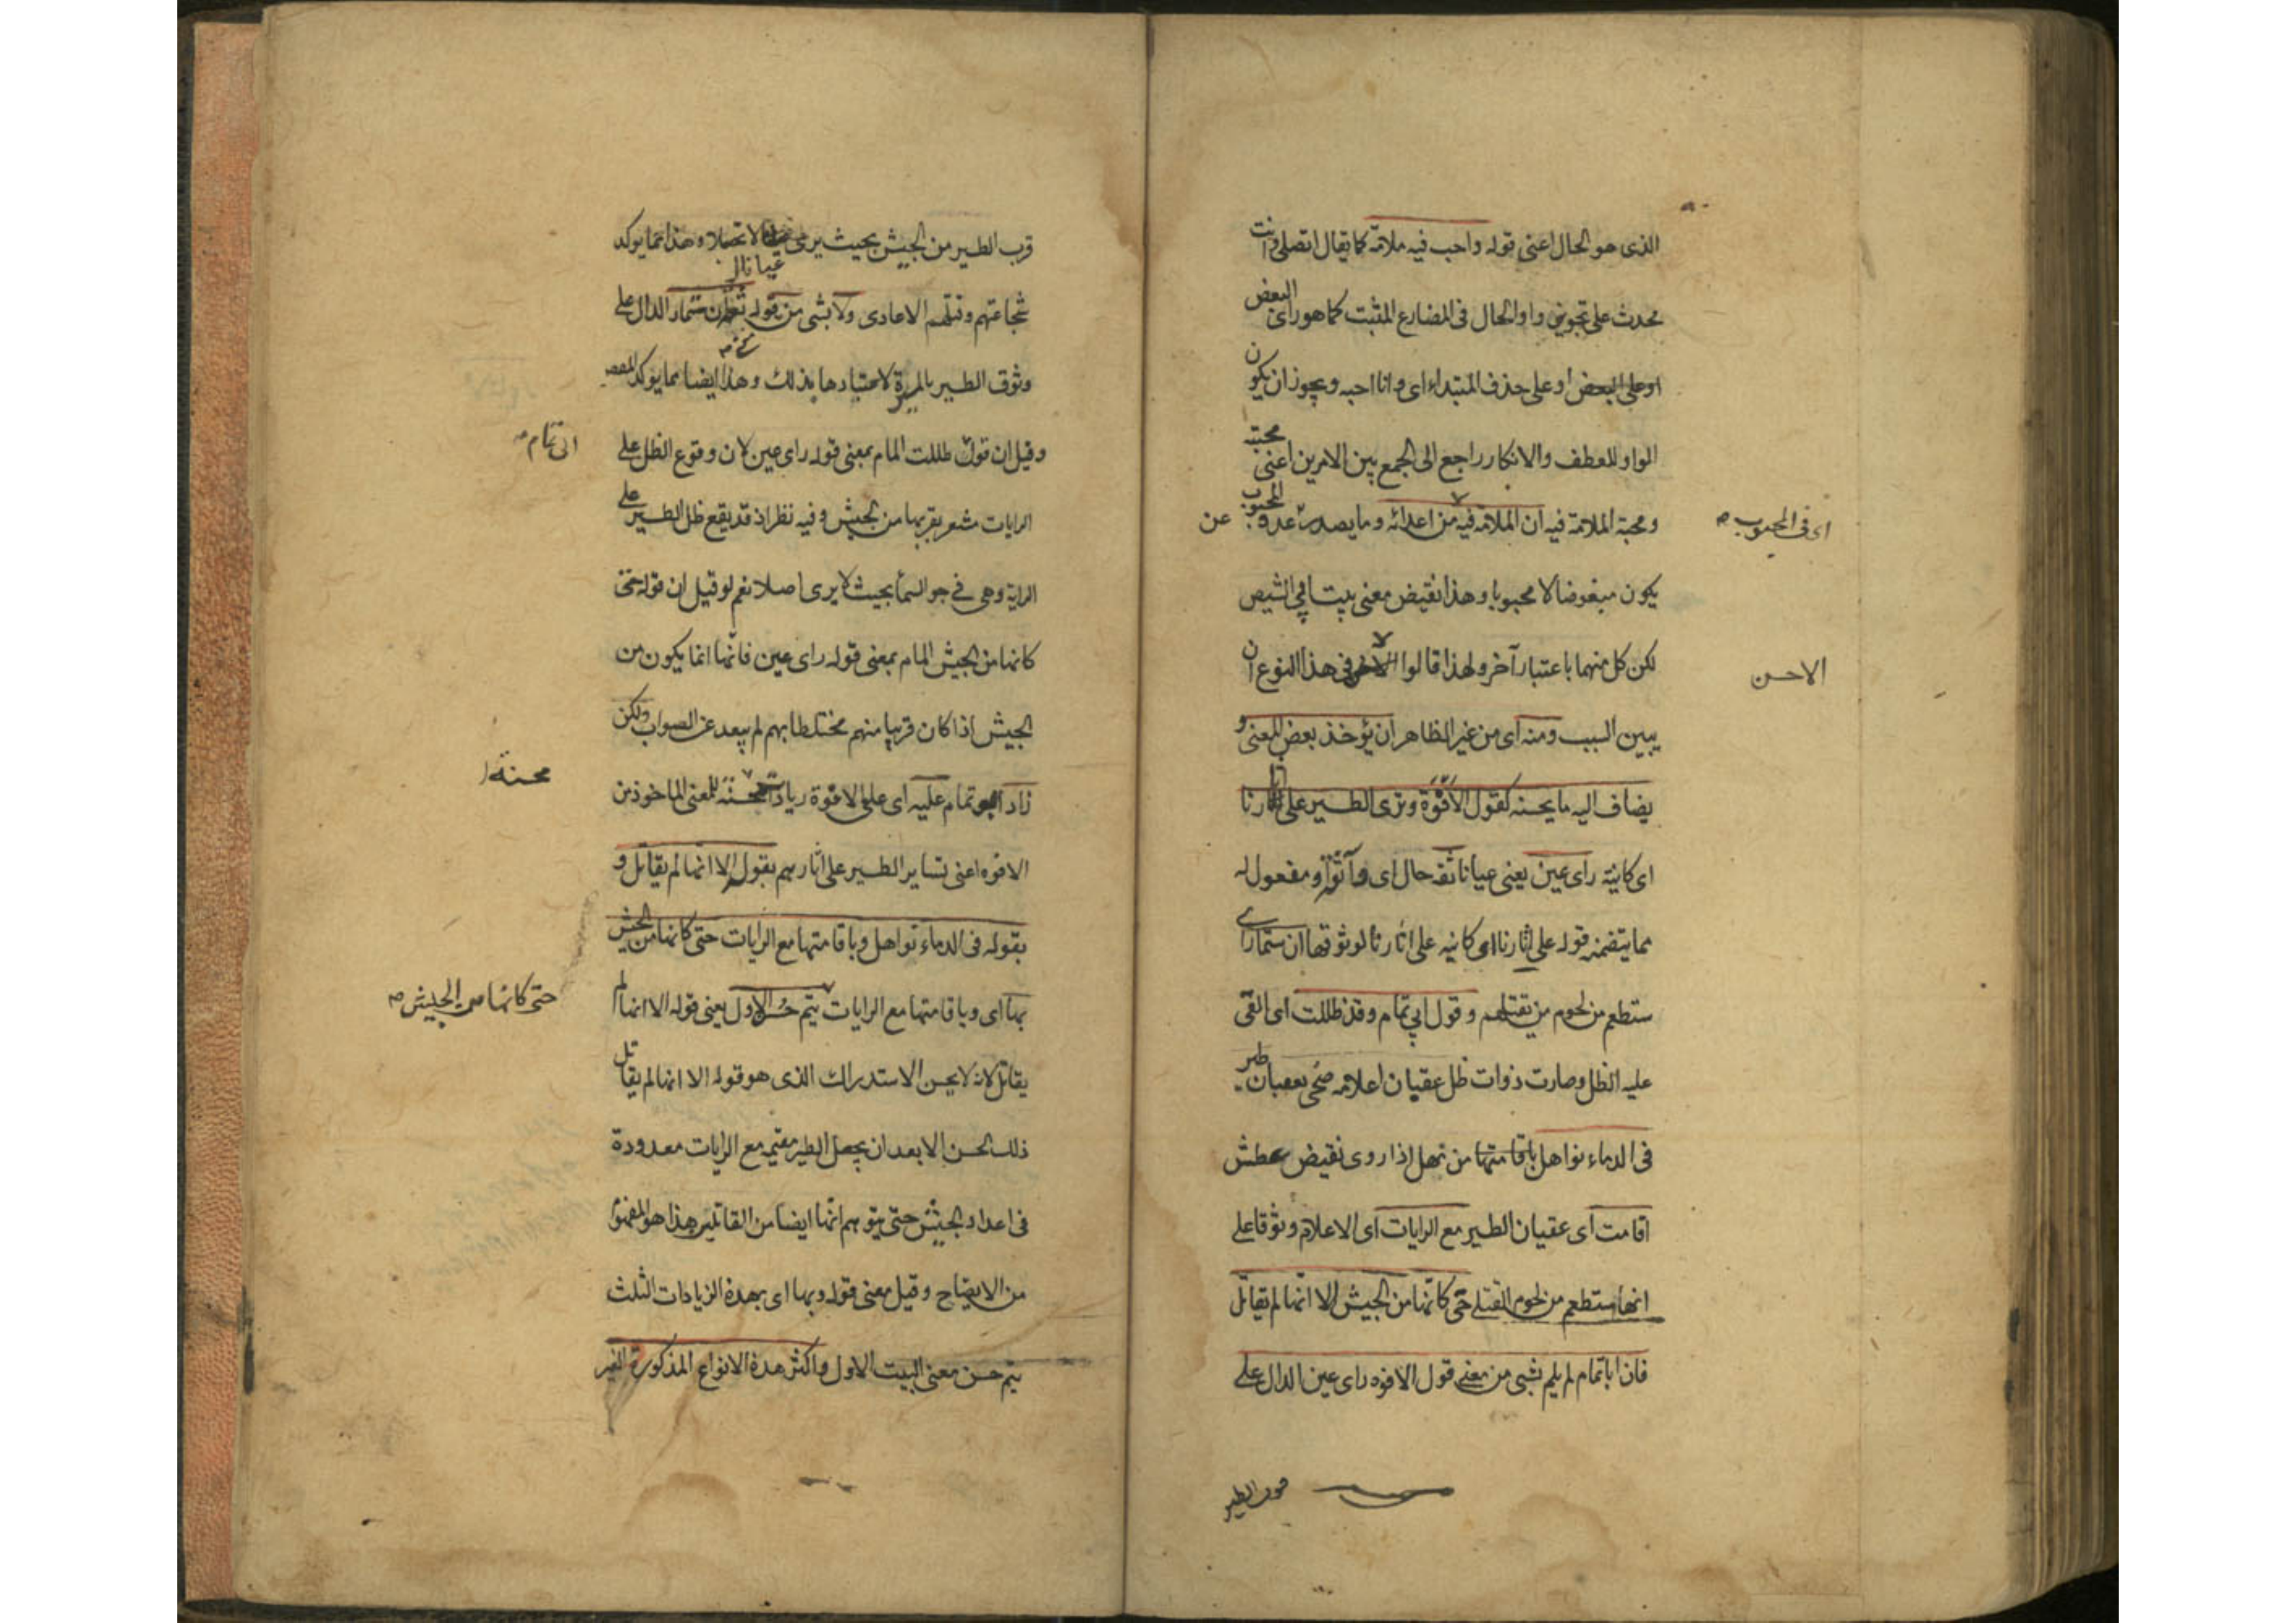 الذى هو الحال اعنى قوله واحب فيه ملامة كما يقال اتصلى وانت
محدث على تجويز واو الحال فى المضارع المثبت كما هو راى البعض
او على حذف المبتداء اى وانا احبه ويجوز ان يكون
الواو للعطف والانكار راجع الى الجمع بين الامرين اعنى محبته
ومحبة الملامة فيه ان الملامة فيه من اعدائه وما يصدر عن عدو المحبوب
اى فى المحبوب
يكون مبغوضا لا محبوبا وهذا نقيض معنى بيت ابى الشيص
لكن كل منهما باعتبار آخر ولهذا قالوا فى هذا النوع ان
الاحسن
يبين السبب ومنه اى من غير الظاهر ان يؤخذ بعض المعنى و
يضاف اليه ما يحسنه كقول الافوه وترى الطير على آثارنا
اى كائنة راى عين يعنى عيانا ثقة حال اى او مفعول له
مما يتضمنه قوله على اثارنا اى كائنه على اثارنا لوثوقها ان ستمار اى
ستطعم من لحوم من نقتلهم وقول ابى تمام وقد ظللت اى القى
عليه الظل وصارت ذوات ظل عقبان اعلامه ضحى بعقبان طير
فى الدماء نواهل من نهل اذا روى نقيض عطش
اقامت اى عقبان الطير مع الرايات اى الاعلام وثوقا على
انها ستطعم من لحوم القتلى حتى كانها من الجيش الا انها لم تقاتل
فان ابا تمام لم يلم بشى من معنى قول الافوه راى عين الدال على
قرب الطير
قرب الطير من الجيش بحيث يرى عيانا لا تخيلا وهذا مما يوكد
شجاعتهم وقتلهم الاعادى ولا بشى من قوله ثقة ان ستمار الدال على
وثوق الطير بالميرة لاعتيادها بذلك وهذا ايضا مما يوكد المقصود
وقيل ان قول ظللت المام بمعنى قوله راى عين لان وقوع الظل على
ابى تمام
الرايات مشعر بقربها من الجيش وفيه نظر اذ قد يقع ظل الطير على
الراية وهى فى جو السما بحيث لا يرى اصلا نعم لو قيل ان قوله حتى
كانها من الجيش المام بمعنى قوله راى عين فانها انما يكون من
الجيش اذا كان قريبا منهم مختلطا بهم لم يبعد عن الصواب ولكن
زاد ابو تمام عليه اى على الافوه زيادات محسنة للمعنى الماخوذ من
محسنة
الافوه اعنى تساير الطير على اثارهم بقوله الا انها لم يقاتل و
بقوله فى الدماء نواهل وباقامتها مع الرايات حتى كانها من الجيش
بها اى وباقامتها مع الرايات يتم حسن الاول يعنى قوله الا انها لم
حتى كانها من الجيش
يقاتل لانه لا يحسن الاستدراك الذى هو قوله الا انها لم يقاتل
ذلك الحسن الا بعد ان يجعل الطير مقيمه مع الرايات معدودة
فى اعداد الجيش حتى يتوهم انها ايضا من المقاتلين هذا هو المفهوم
من الايضاح وقيل معنى قوله وبها اى بهذه الزيادات الثلث
يتم حسن معنى البيت الاول واكثر هذه الانواع المذكورة لغير